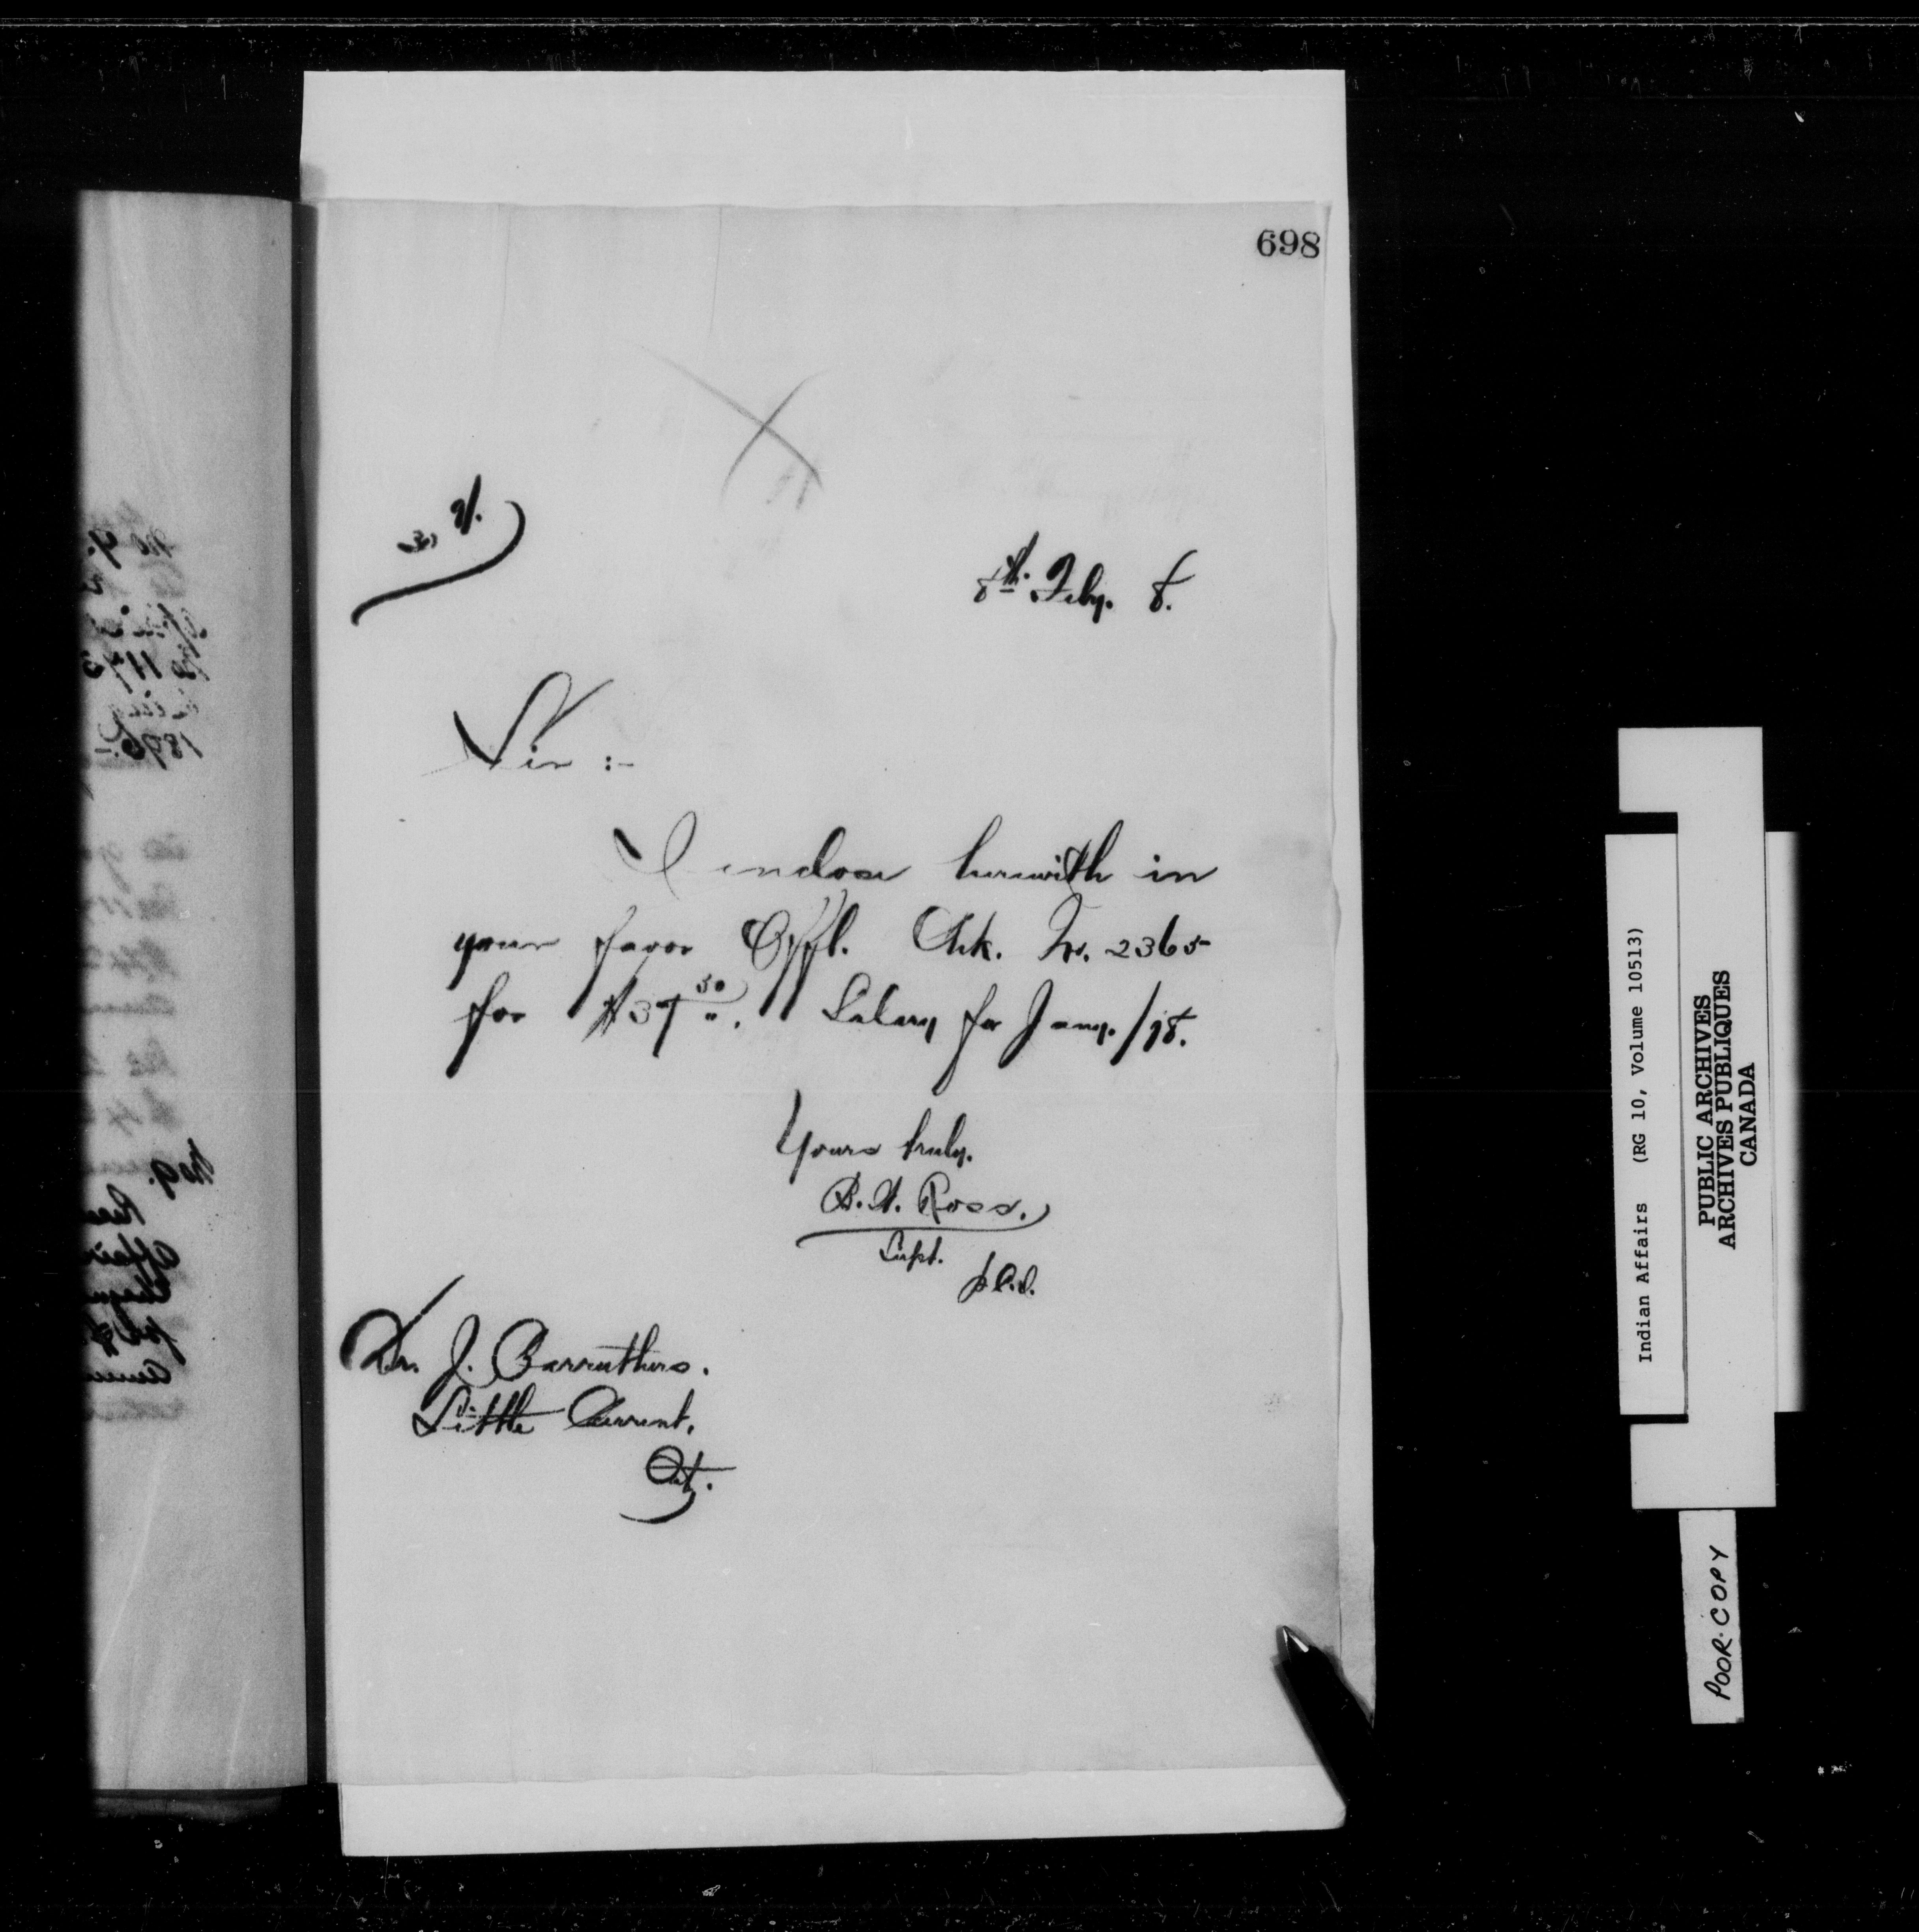 698
8th. Feby. 8.
Sir :-
I enclose herewith in
your favor Offl. Chk. No. 2365
for $37 50/". Salary for Jany. /98.
Yours truly.
B.W. Ross.
Supt.
Dr. J. Carruthers.
Little Current,
Ont.
Indian Affairs (RG 10, Volume 10513)
PUBLIC ARCHIVES
ARCHIVES PUBLIQUES
CANADA
POOR COPY